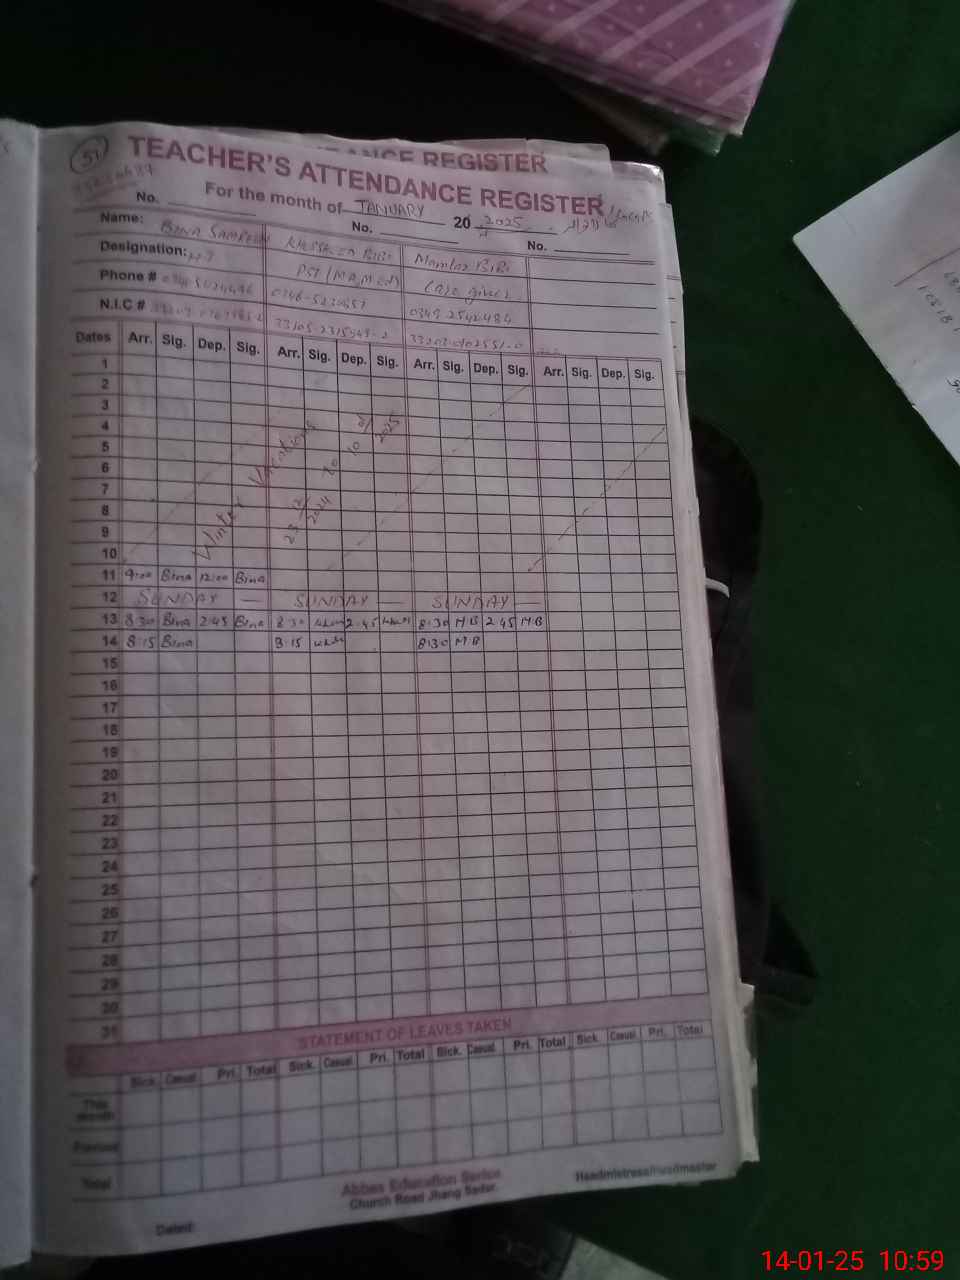 51
ANCE REGISTER
TEACHER'S ATTENDANCE REGISTER
For the month of JANUARY 20 2025
No. No. No.
Name: BINA BIBI Momtaz BiBi
Designation: H.T PST Care giver
Phone # 0345-2542484
N.I.C #
Dates Arr. Sig. Dep. Sig. Arr. Sig. Dep. Sig. Arr. Sig. Dep. Sig. Arr. Sig. Dep. Sig.
1
2
3
4
5
6
7
8
9
10
Winter Vacations 23 12/2024 To 10 01/2025
11 9:00 Bina 12:00 Bina
12 SUNDAY — SUNDAY — SUNDAY —
13 8:30 Bina 2:45 Bina 8:30 2:45 8:30 M.B 2:45 M.B
14 8:15 Bina 8:15 8:30 M.B
15
16
17
18
19
20
21
22
23
24
25
26
27
28
29
30
31
STATEMENT OF LEAVES TAKEN
Sick. Casual. Pri. Total Sick. Casual. Pri. Total Sick. Casual. Pri. Total Sick. Casual. Pri. Total
This month
Previous
Total
Abbas Education Serice
Church Road Jhang Sadar.
Headmistress/Headmaster
Dated:
14-01-25 10:59